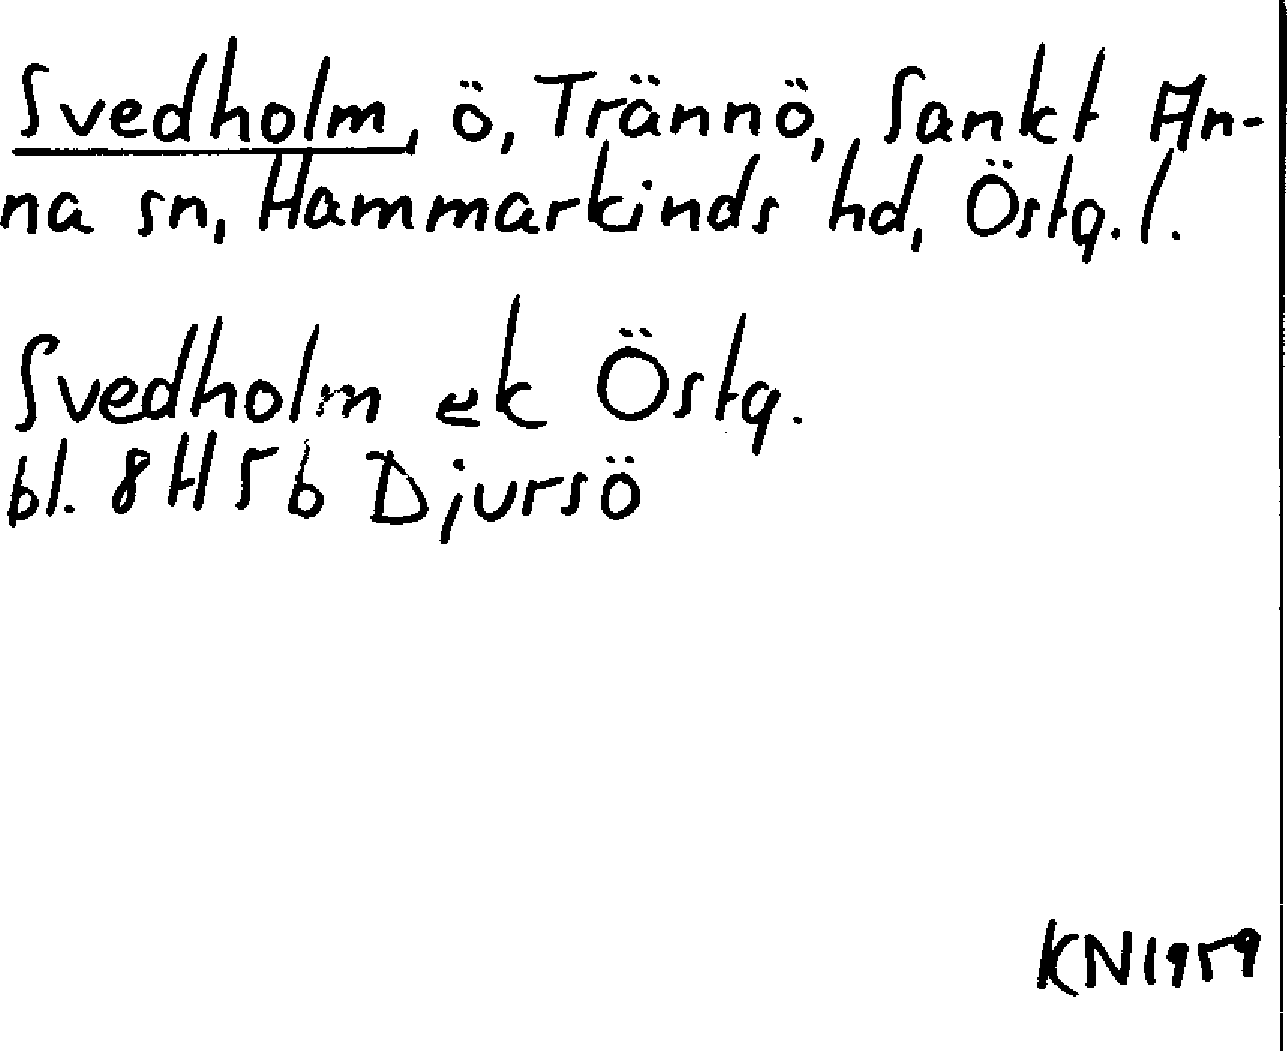 Svedholm, ö, Trännö, Sankt An-
na sn, Hammarkinds hd, Östg. l.
Svedholm ek Östg.
bl. 8H5b Djursö
KN1959